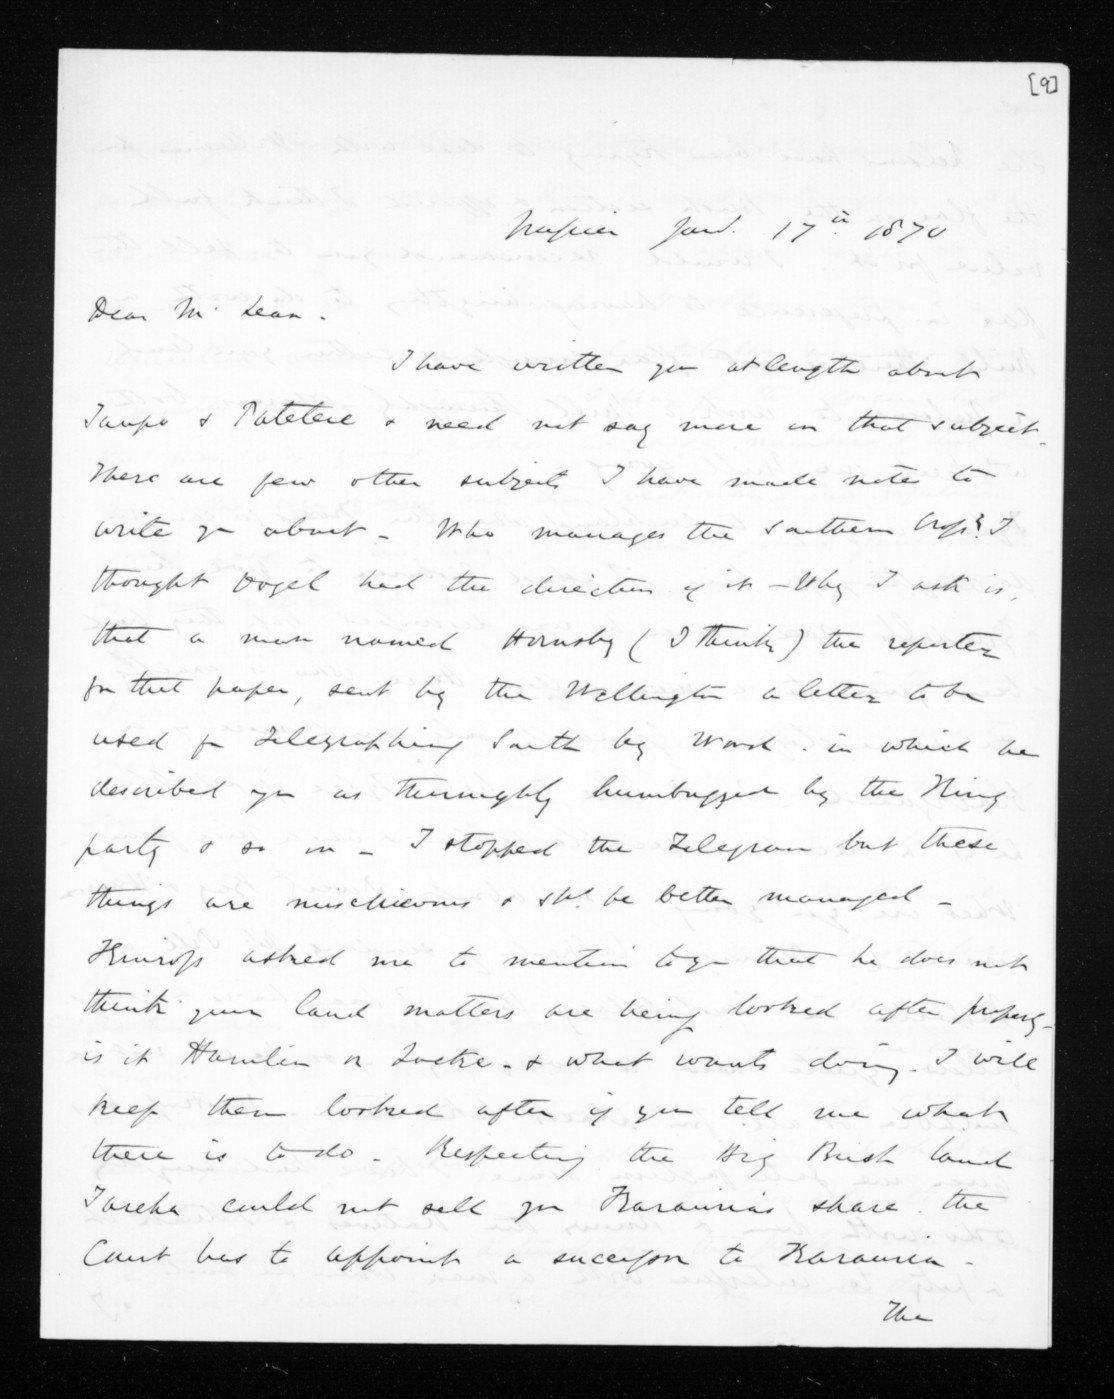 [9]
Napier Jany. 17th 1870
Dear Mc Lean.
I have written you at length about
Taupo & Patetere & need not say more on that subject.
There are few other subjects I have made notes to
write you about - Who manages the Southern Cross? I
thought Vogel had the direction of it - Why I ask is,
that a man named Hornsby (I think) the reporter
for that paper, sent by the Wellington a letter to be
used for Telegraphing South by Ward. in which he
described you as thoroughly humbugged by the King
party & so on - I stopped the Telegram but these
things are mischievous & shd. be better managed -
Kinross asked me to mention to you that he does not
think your land matters are being looked after properly -
is it Hamlin or Locke. & what wants doing. I will
keep them looked after if you tell me what
there is to do - Respecting the Big Bush land
Tareha could not sell you Karauria's share. the
Court has to appoint a successor to Karauria -
The